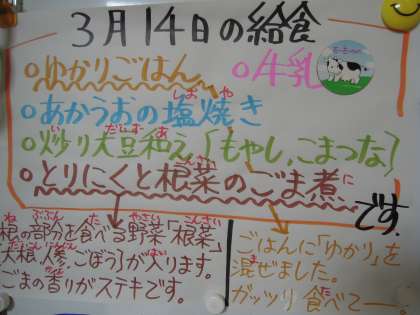 3月14日の給食
○ゆかりごはん ○牛乳
○あかうおの塩焼き
○炒り大豆和え〔もやし,こまつな〕
○とりにくと根菜のごま煮
です。
根の部分を食べる野菜「根菜」
〔大根,人参,ごぼう〕が入ります。
ごまの香りがステキです。
ごはんに「ゆかり」を
混ぜました。
ガッツリ食べてー。